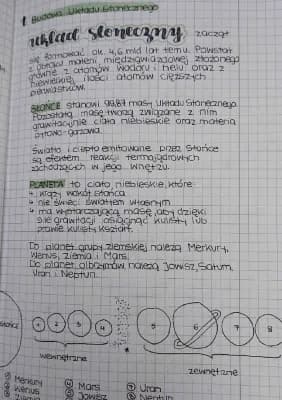 1. Budowa Układu Słonecznego
układ słoneczny zaczął
się formować ok. 4,6 mld lat temu. Powstał
z obłoku materii międzygwiazdowej złożonego
głównie z atomów wodoru i helu oraz z
niewielkiej ilości atomów cięższych
pierwiastków.
SŁOŃCE stanowi 99,87 masy Układu Słonecznego.
Pozostałą masę tworzą związane z nim
grawitacyjnie ciała niebieskie oraz materia
pyłowo-gazowa.
Światło i ciepło emitowane przez Słońce
są efektem reakcji termojądrowych
zachodzących w jego wnętrzu.
PLANETA to ciało niebieskie, które
↳ krąży wokół Słońca
↳ nie świeci światłem własnym
↳ ma wystarczającą masę, aby dzięki
sile grawitacji osiągnąć kulisty lub
prawie kulisty kształt.
Do planet grupy ziemskiej należą Merkury,
Wenus, Ziemia i Mars.
Do planet olbrzymów należą Jowisz, Saturn,
Uran i Neptun.
Słońce 1 2 3 4 5 6 7 8
wewnętrzne zewnętrzne
① Merkury ④ Mars ⑦ Uran
② Wenus ⑤ Jowisz ⑧ Neptun
③ Ziemia